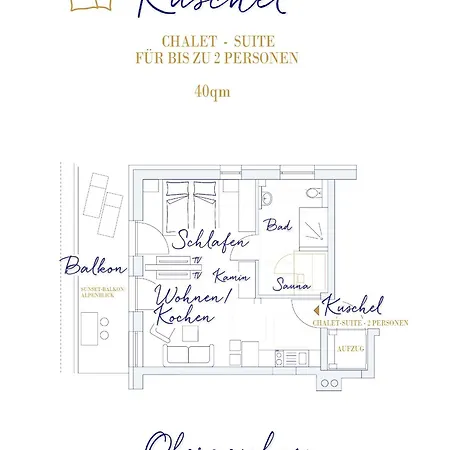 Kuschel
CHALET - SUITE
FÜR BIS ZU 2 PERSONEN
40qm
Bad
Schlafen
Balkon
TV
TV
Kamin
Sauna
SUNSET-BALKON
ALPENBLICK
Wohnen/
Kochen
Kuschel
CHALET-SUITE - 2 PERSONEN
AUFZUG